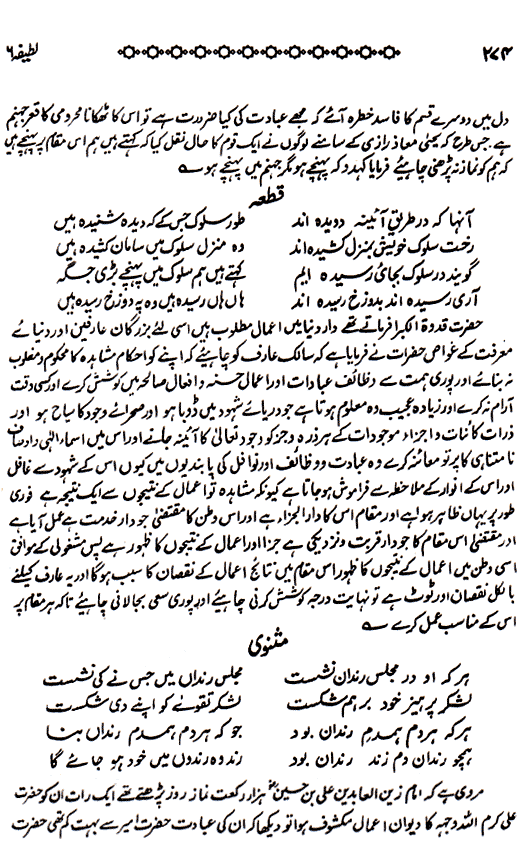 ۲۷۴ لطیفہ ۶
دل میں دوسرے قسم کا فاسد خطرہ آئے کہ مجھے عبادت کی کیا ضرورت ہے تو اس کا ٹھکانا محرومی کا قعر جہنم
ہے۔ جس طرح کہ یحییٰ معاذ رازی کے سامنے لوگوں نے ایک قوم کا حال نقل کیا کہ کہتے ہیں ہم اس مقام پر پہنچے ہیں
کہ ہم کو نماز نہ پڑھنی چاہیئے فرمایا کہدد کہ پہنچے ہو مگر جہنم میں پہنچے ہو
قطعہ
آنہا کہ در طریق آئینہ دویدہ اند طور سلوک جس کے کہ دیدہ شنیدہ ہیں
رخت سلوک خویش بمنزل کشیدہ اند وہ منزل سلوک میں سامان کشیدہ ہیں
گویند در سلوک بجائے رسیدہ ایم کہتے ہیں ہم سلوک میں پہنچے بڑی جگہ
آری رسیدہ اند بدوزخ رسیدہ اند ہاں ہاں رسیدہ ہیں وہ بہ دوزخ رسیدہ ہیں
حضرت قدوۃ الکبرا فرماتے تھے دار دنیا میں اعمال مطلوب ہیں اسی لئے بزرگان عارفین اور دنیائے
معرفت کے غواص حضرات نے فرمایا ہے کہ سالک عارف کو چاہیئے کہ اپنے کو احکام مشاہدہ کا محکوم و مغلوب
نہ بنائے اور پوری ہمت سے وظائف عبادات اور اعمال حسنہ و افعال صالحہ میں کوشش کرے اور کسی وقت
آرام نہ کرے اور زیادہ عجیب وہ معلوم ہوتا ہے جو دریائے شہود میں ڈوبا ہو اور صحرائے وجود کا سیاح ہو اور
ذرات کائنات و اجزاء موجودات کے ہر ذرہ و جز کو وجود تعالیٰ کا آئینہ جانے اور اس میں اسماء الہی و اوصاف
نا متناہی کا پرتو معائنہ کرے وہ عبادت و وظائف اور نوافل کی پابندیوں میں کیوں اس کے شہود سے غافل
اور اس کے انوار کے ملاحظہ سے فراموش ہو جاتا ہے کیونکہ مشاہدہ تو اعمال کے نتیجوں سے ایک نتیجہ ہے فوری
طور پر یہاں ظاہر ہوا ہے اور مقام اس کا دار الجزاء ہے اور اس وطن کا مقتضیٰ جو دار خدمت ہے عمل آیا ہے
اور مقتضیٰ اس مقام کا جو دار قربت و نزدیکی ہے جزا اور اعمال کے نتیجوں کا ظہور ہے پس مشغولی کے موافق
اسی وطن میں اعمال کے نتیجوں کا ظہور اس مقام میں نتائج اعمال کے نقصان کا سبب ہوگا اور یہ عارف کیلئے
بالکل نقصان اور ٹوٹ ہے تو نہایت درجہ کوشش کرنی چاہیئے اور پوری سعی بجا لانی چاہیئے تاکہ ہر مقام پر
اس کے مناسب عمل کرے
مثنوی
ہر کہ او در مجلس رندان نشست مجلس رنداں میں جس نے کی نشست
لشکر پرہیز خود برہم شکست لشکر تقویٰ کو اپنے دی شکست
ہر کہ ہر دم ہمدم رندان بود جو کہ ہر دم ہمدم رنداں بنا
ہمچو رندان دم زند رندان بود رند وہ رندوں میں خود ہو جائے گا
مروی ہے کہ امام زین العابدین علی بن حسین ہزار رکعت نماز روز پڑھتے تھے ایک رات ان کو حضرت
علی کرم اللہ وجہہ کا دیوان اعمال مکشوف ہوا تو دیکھا کہ ان کی عبادت حضرت امیر سے بہت کم تھی حضرت